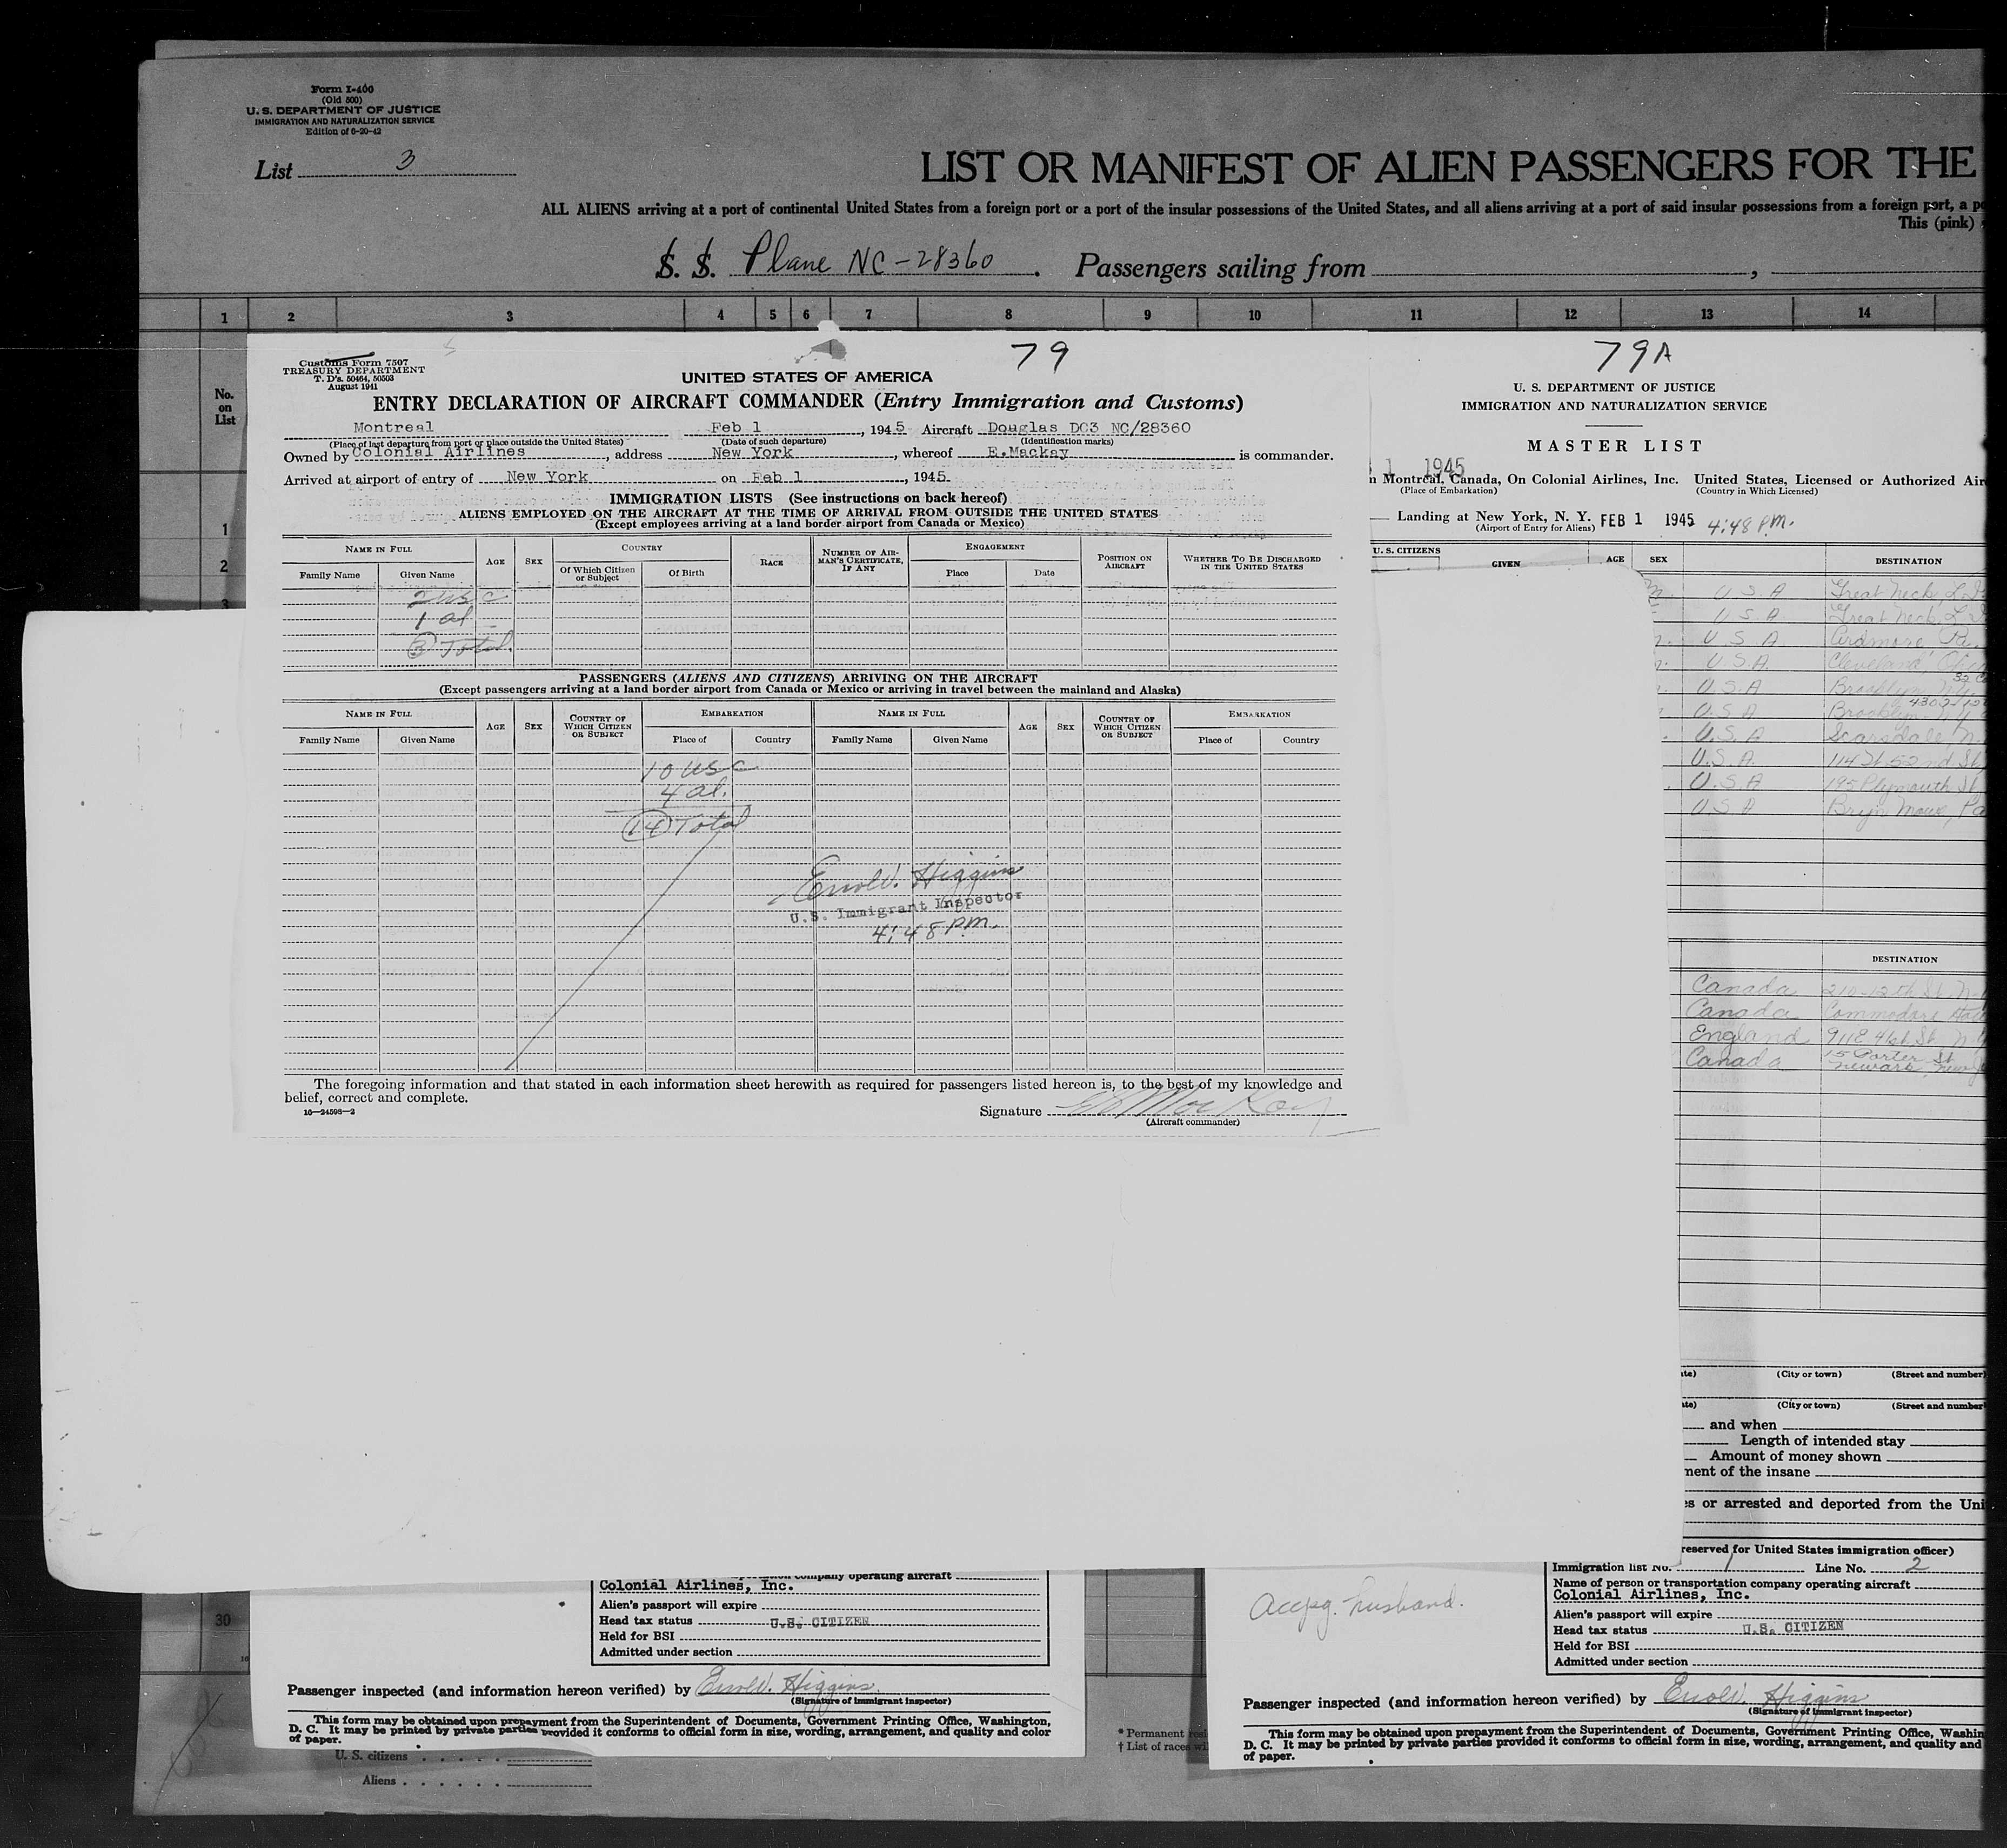 Form I-400
(Old 500)
U. S. DEPARTMENT OF JUSTICE
IMMIGRATION AND NATURALIZATION SERVICE
Edition of 6-20-42
List 3
LIST OR MANIFEST OF ALIEN PASSENGERS FOR THE
ALL ALIENS arriving at a port of continental United States from a foreign port or a port of the insular possessions of the United States, and all aliens arriving at a port of said insular possessions from a foreign port, a
This (pink)
S. S. Plane NC-28360. Passengers sailing from
1 2 3 4 5 6 7 8 9 10 11 12 13 14
No.
on
List
1
2
3
79
Customs Form 7507
TREASURY DEPARTMENT
T. D's. 50464, 50503
August 1941
UNITED STATES OF AMERICA
ENTRY DECLARATION OF AIRCRAFT COMMANDER (Entry Immigration and Customs)
Montreal Feb 1, 1945 Aircraft Douglas DC3 NC/28360
(Place of last departure from port or place outside the United States) (Date of such departure) (Identification marks)
Owned by Colonial Airlines, address New York, whereof E.Mackay is commander.
Arrived at airport of entry of New York on Feb 1, 1945.
IMMIGRATION LISTS (See instructions on back hereof)
ALIENS EMPLOYED ON THE AIRCRAFT AT THE TIME OF ARRIVAL FROM OUTSIDE THE UNITED STATES
(Except employees arriving at a land border airport from Canada or Mexico)
NAME IN FULL AGE SEX COUNTRY RACE NUMBER OF AIRMAN'S CERTIFICATE, IF ANY ENGAGEMENT POSITION ON AIRCRAFT WHETHER TO BE DISCHARGED IN THE UNITED STATES
Family Name Given Name Of Which Citizen or Subject Of Birth Place Date
2 us c
1 al
3 Total.
PASSENGERS (ALIENS AND CITIZENS) ARRIVING ON THE AIRCRAFT
(Except passengers arriving at a land border airport from Canada or Mexico or arriving in travel between the mainland and Alaska)
NAME IN FULL AGE SEX COUNTRY OF WHICH CITIZEN OR SUBJECT EMBARKATION NAME IN FULL AGE SEX COUNTRY OF WHICH CITIZEN OR SUBJECT EMBARKATION
Family Name Given Name Place of Country Family Name Given Name Place of Country
10 us c
4 al.
14 Total
Errol V. Higgins
U.S. Immigrant Inspector
4:48 PM.
The foregoing information and that stated in each information sheet herewith as required for passengers listed hereon is, to the best of my knowledge and
belief, correct and complete.
16—24598—2
Signature
(Aircraft commander)
79A
U. S. DEPARTMENT OF JUSTICE
IMMIGRATION AND NATURALIZATION SERVICE
MASTER LIST
1 1945
Montreal, Canada, On Colonial Airlines, Inc. United States, Licensed or Authorized
(Place of Embarkation) (Country in Which Licensed)
Landing at New York, N. Y. FEB 1 1945 4:48 P.M.
(Airport of Entry for Aliens)
U. S. CITIZENS GIVEN AGE SEX DESTINATION
U.S.A Great Neck, L.
U.S.A. Great Neck, L
U.S.A Ardmore, Pa.
U.S.A. Cleveland,
U.S.A Brooklyn
U.S.A Brooklyn
U.S.A Scarsdale, N.
U.S.A. 52nd St
U.S.A 195 Plymouth St
U.S.A Bryn Mawr, Pa
DESTINATION
Canada 210-12th St. N
Canada Commodore
England 41st St. N
Canada 15 Porter St
Newark, New
(City or town) (Street and number)
(City or town) (Street and number)
and when
Length of intended stay
Amount of money shown
ment of the insane
or arrested and deported from the
company operating aircraft
Colonial Airlines, Inc.
Alien's passport will expire
Head tax status U.S. CITIZEN
Held for BSI
Admitted under section
30
Passenger inspected (and information hereon verified) by Errol V. Higgins
(Signature of immigrant inspector)
This form may be obtained upon prepayment from the Superintendent of Documents, Government Printing Office, Washington,
D. C. It may be printed by private parties provided it conforms to official form in size, wording, arrangement, and quality and color
of paper.
U. S. citizens
Aliens
* Permanent
† List of races
Accpg. husband.
reserved for United States immigration officer)
Immigration list No. 1 Line No. 2
Name of person or transportation company operating aircraft
Colonial Airlines, Inc.
Alien's passport will expire
Head tax status U.S. CITIZEN
Held for BSI
Admitted under section
Passenger inspected (and information hereon verified) by Errol V. Higgins
(Signature of immigrant inspector)
This form may be obtained upon prepayment from the Superintendent of Documents, Government Printing Office,
D. C. It may be printed by private parties provided it conforms to official form in size, wording, arrangement, and quality and
of paper.